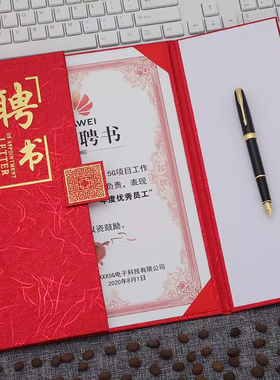 聘书
OF APPOINTMENT
LETTER
AWEI
聘书
5G项目工作
负责，表现
年度优秀员工"
以资鼓励。
XXX5G电子科技有限公司
2020年8月1日